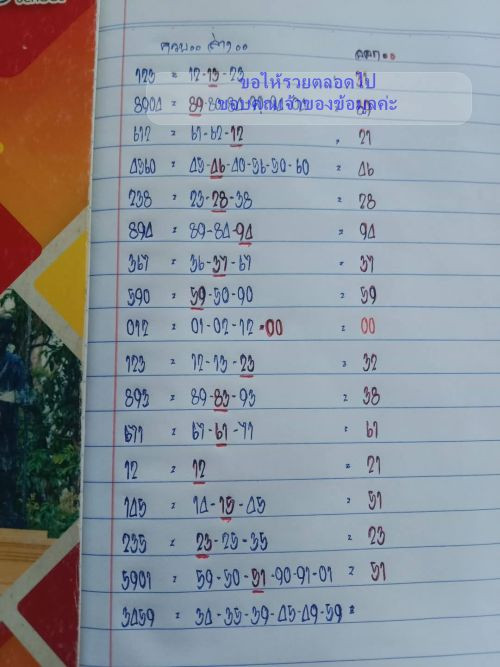 ล่าง..
ออก..
123 = 12-13-23
ขอให้รวยตลอดไป
8904 = 89-80-
ขอบคุณเจ้าของข้อมูลค่ะ
612 = 61-62-12 = 21
4560 = 45-46-40-56-50-60 = 46
238 = 23-28-38 = 28
894 = 89-84-94 = 94
367 = 36-37-67 = 37
590 = 59-50-90 = 59
012 = 01-02-12-00 = 00
123 = 12-13-23 = 32
893 = 89-83-93 = 38
671 = 67-61-71 = 61
12 = 12 = 21
145 = 14-15-45 = 51
235 = 23-25-35 = 23
5901 = 59-50-51-90-91-01 = 51
3459 = 34-35-39-45-49-59 =